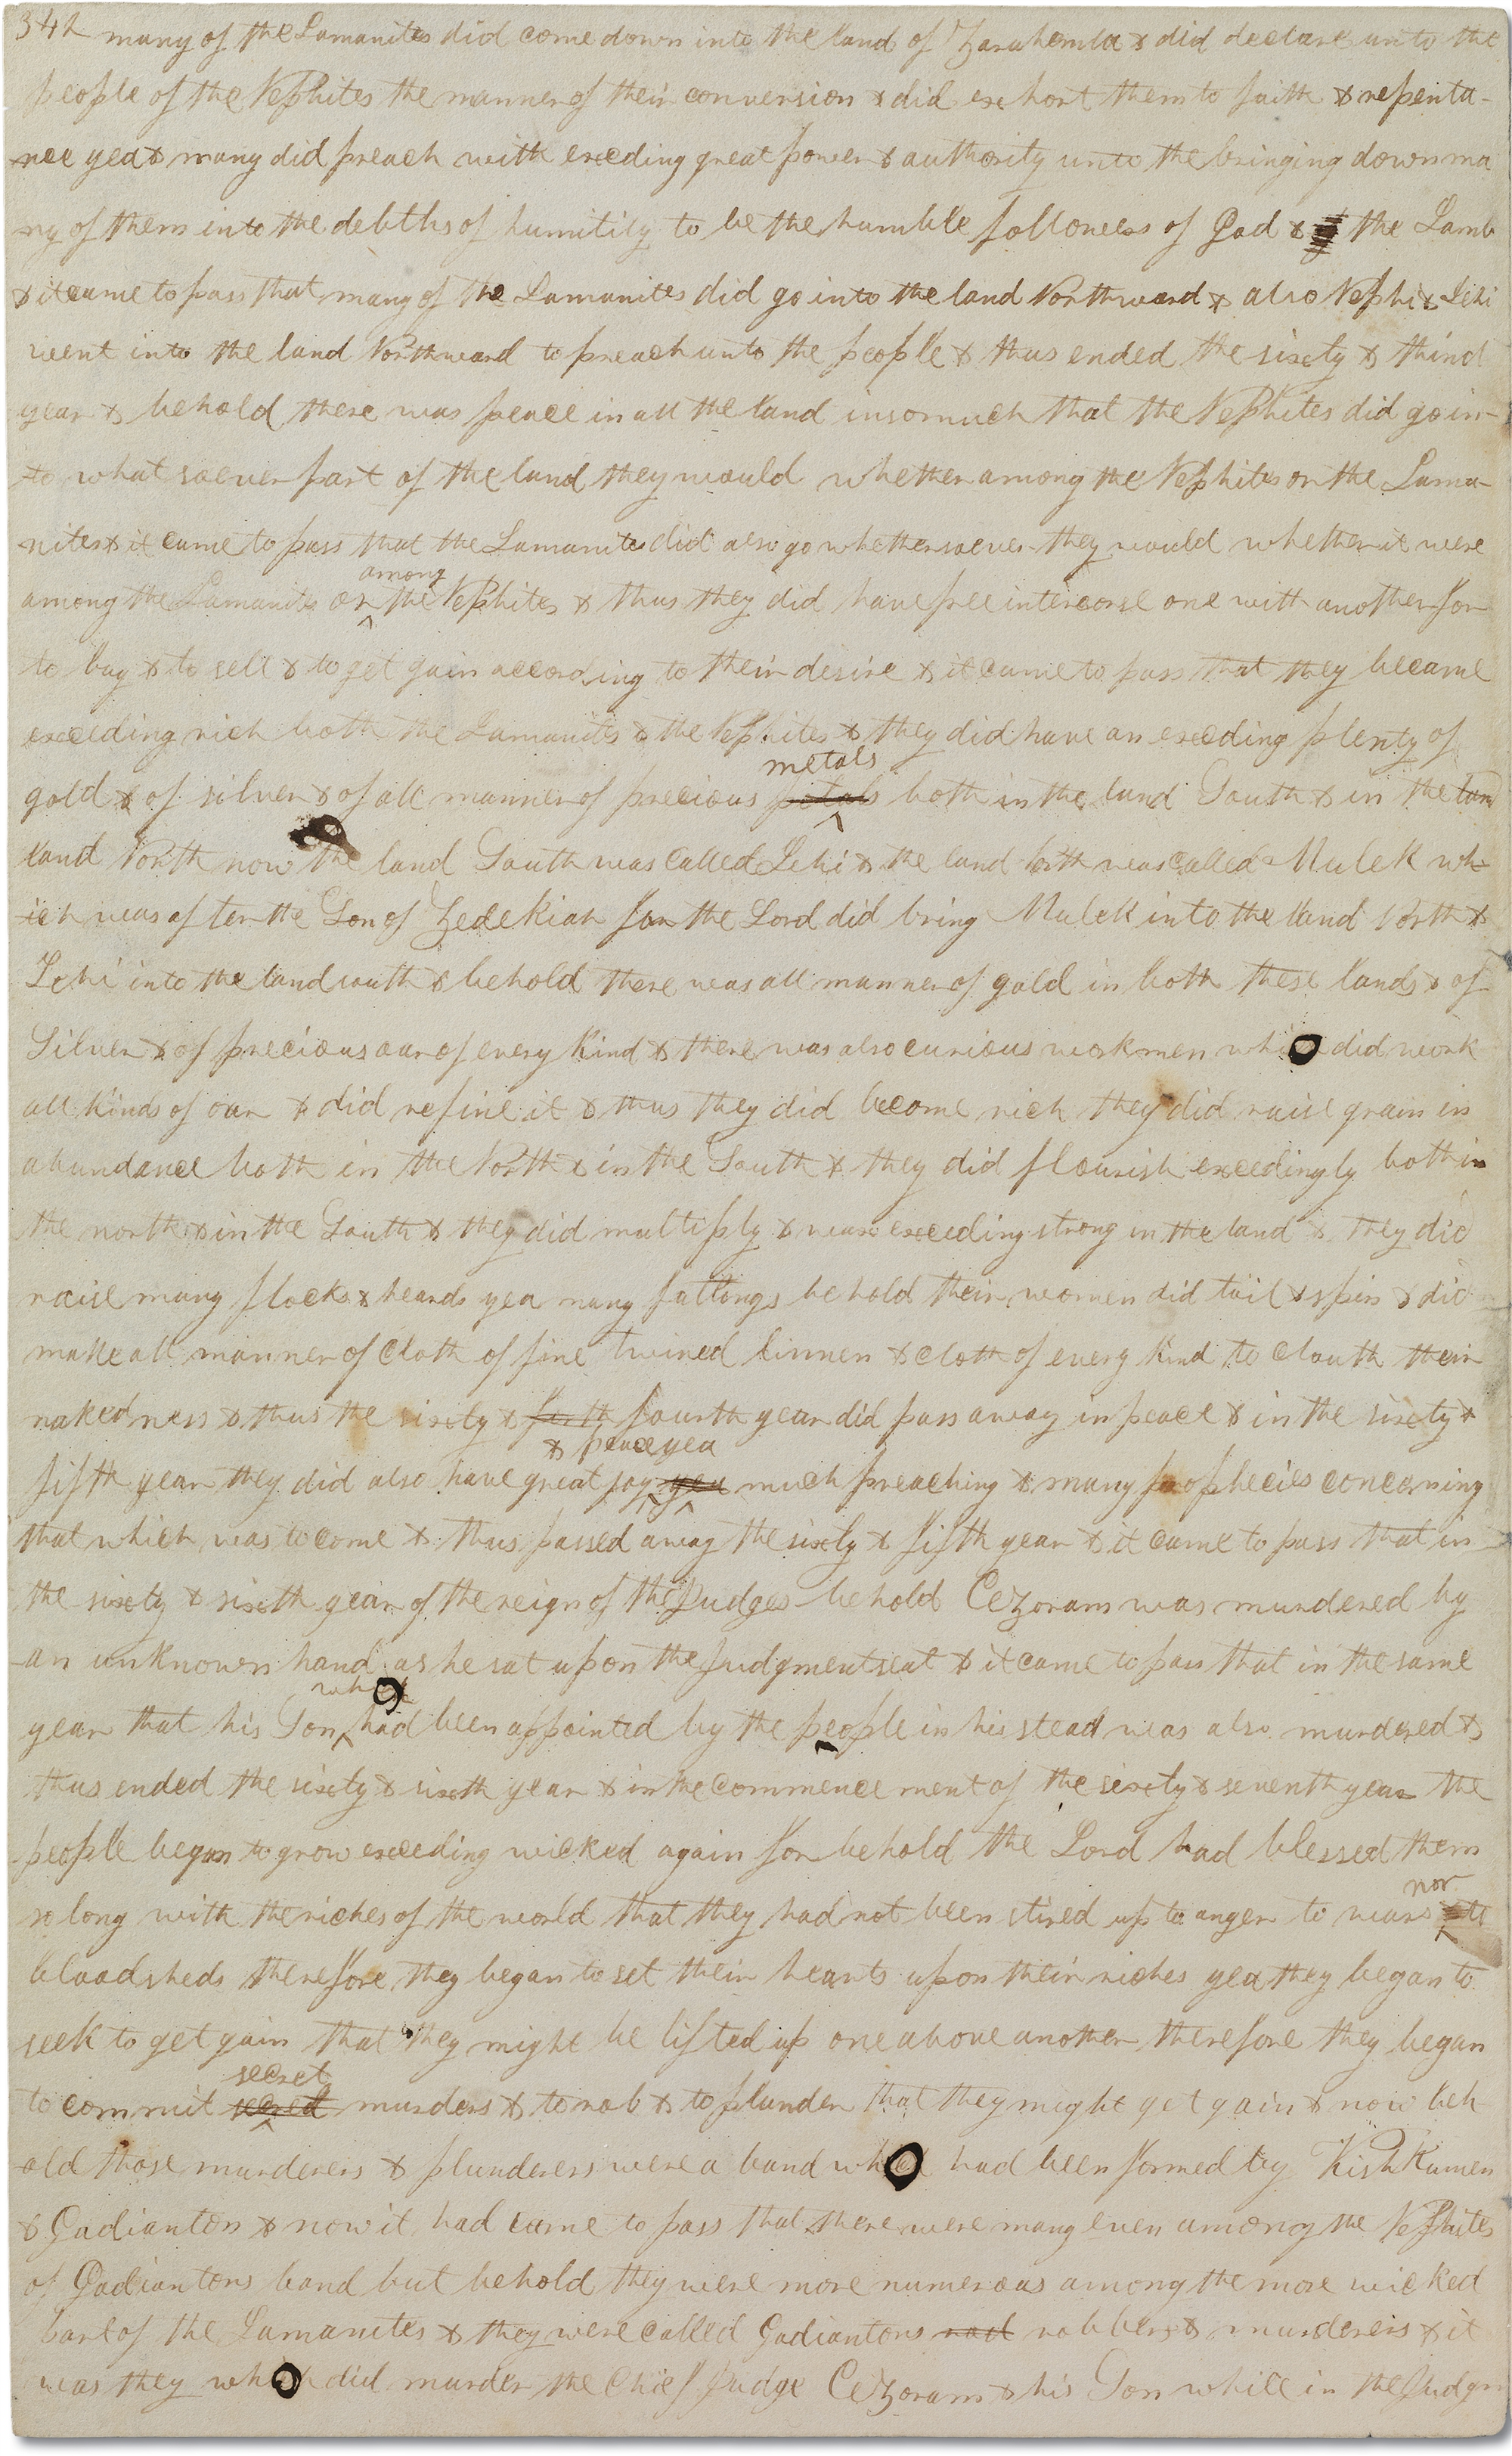 342 many of the Lamanites did come down into the land of Zarahemla & did declare unto the
people of the Nephites the manner of their conversion & did exhort them to faith & repenta-
nce yea & many did preach with exceding great power & authority unto the bringing down ma
ny of them into the debths of humility to be the humble followers of God & the Lamb
& it came to pass that many of the Lamanites did go into the land Northward & also Nephi & Lehi
went into the land Northward to preach unto the people & thus ended the sixty & third
year & behold there was peace in all the land insomuch that the Nephites did go in-
to what soever part of the land they would whether among the Nephites or the Lama-
nites & it came to pass that the Lamanites did also go whethersoever they would whether it were
among
among the Lamanites or ^ the Nephites & thus they did have free intercorse one with another for
to buy & to sell & to get gain according to their desire & it came to pass that they became
exceeding rich both the Lamanites & the Nephites & they did have an exceding plenty of
metals
gold & of silver & of all manner of precious ^ both in the land South & in the lan
land North now the land South was called Lehi & the land North was called Mulek wh-
ich was after the Son of Zedekiah for the Lord did bring Mulek into the land North &
Lehi into the land south & behold there was all manner of gold in both these lands & of
Silver & of precious oar of every kind & there was also curious workmen which did work
all kinds of oar & did refine it & thus they did become rich they did raise grain in
abundance both in the North & in the South & they did flourish exceedingly both in
the north & in the South & they did multiply & wax exceeding strong in the land & they did
raise many flocks & heards yea many fatlongs behold their women did toil & spin & did
make all manner of cloth of fine twined linnen & cloth of every kind to clouth their
nakedness & thus the sixty & forth fourth year did pass away in peace & in the sixty &
& peace yea
fifth year they did also have great joy ^ yea ^ much preaching & many prophecies concerning
that which was to come & thus passed away the sixty & fifth year & it came to pass that in
the sixty & sixth year of the reign of the Judges behold Cezoram was murdered by
an unknown hand as he sat upon the judgment seat & it came to pass that in the same
who
year that his Son ^ had been appointed by the people in his stead was also murdered &
thus ended the sixty & sixth year & in the commence ment of the sixty & seventh year the
people began to grow exceeding wicked again for behold the Lord had blessed them
nor
so long with the riches of the world that they had not been stired up to anger to wars ^ to
bloodsheds therefore they began to set their hearts upon their riches yea they began to
seek to get gain that they might be lifted up one above another therefore they began
secret
to commit ^ murders & to rob & to plunder that they might get gain & now beh
old those murderers & plunderers were a band who had been formed by Kishkumen
& Gadianton & now it had came to pass that there were many even among the Nephites
of Gadiantons band but behold they were more numerous among the more wicked
part of the Lamanites & they were called Gadiantons rob robbers & murderers & it
was they who did murder the Chief Judge Cezoram & his Son while in the Judgm